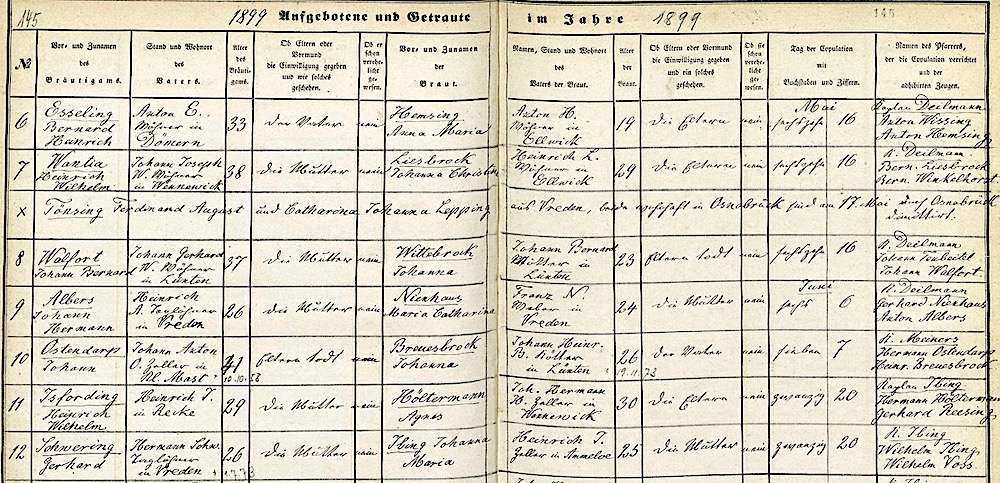 145 1899 Aufgebotene und Getraute im Jahre 1899 145
№ Vor- und Zunamen des Bräutigams. Stand und Wohnort des Vaters. Alter des Bräutigams. Ob Eltern oder Vormund die Einwilligung gegeben und wie solches geschehen. Ob er schon verehelicht gewesen. Vor- und Zunamen der Braut. Namen, Stand und Wohnort des Vaters der Braut. Alter der Braut. Ob Eltern oder Vormund die Einwilligung gegeben und ein solches geschehen. Ob sie schon verehelicht gewesen. Tag der Copulation mit Buchstaben und Ziffern. Namen des Pfarrers, der die Copulation verrichtet und der adhibirten Zeugen.
Mai
6 Esseling Bernard Heinrich
Anton E. Wöhner in Dömern
33 der Vater nein
Hemsing Anna Maria
Anton H. Wöhner in Ellwick
19 die Eltern nein sechzehn 16
Kaplan Deilmann
Anton Wissing
Anton Hemsing
7 Wantia Heinrich Wilhelm
Johann Joseph W. Wöhner in Wennewick
38 die Mutter nein
Liesbrock Johanna Christin
Heinrich L. Wöhner in Ellwick
29 die Eltern nein sechzehn 16
K. Deilmann
Bern. Liesbrock
Bern. Winkelhorst
x Tönsing Ferdinand August und Catharina Johanna Lepping aus Vreden, beide in Osnabrück sind am 17. Mai nach Osnabrück dimittirt.
8 Walfort Johann Bernard
Johann Gerhard W. Wöhner in Lünten
37 die Mutter nein
Wittebrock Johanna
Johann Bernard in Lünten
23 Eltern todt nein sechzehn 16
K. Deilmann
Johann
Johann Walfort
Juni
9 Albers Johann Hermann
Heinrich A. Taglöhner in Vreden
26 die Mutter nein
Nienhaus Maria Catharina
Franz N. Weber in Vreden
24 die Mutter nein sechs 6
K. Deilmann
Gerhard Nienhaus
Anton Albers
10 Ostendarp Johann
Johann Anton O. Zeller in Kl. Mast
41 10.10.58 Eltern todt nein
Breuesbrock Johanna
Johann Heinr. B. Kötter in Lünten
26 19.11.73 der Vater nein sieben 7
K. Meiners
Hermann Ostendarp
Heinr. Breuesbrock
11 Isfording Heinrich Wilhelm
Heinrich I. in Recke
29 die Mutter nein
Höltermann Agnes
Joh. Hermann H. Zeller in Wennewick
30 die Eltern nein zwanzig 20
Kaplan Ibing
Hermann Höltermann
Gerhard
12 Schwering Gerhard
Hermann Schw. Taglöhner in Vreden
26 die Mutter nein
Ibing Johanna Maria
Heinrich I. Zeller in Ammeloe
25 die Mutter nein zwanzig 20
K. Ibing
Wilhelm Ibing
Wilhelm Voss.